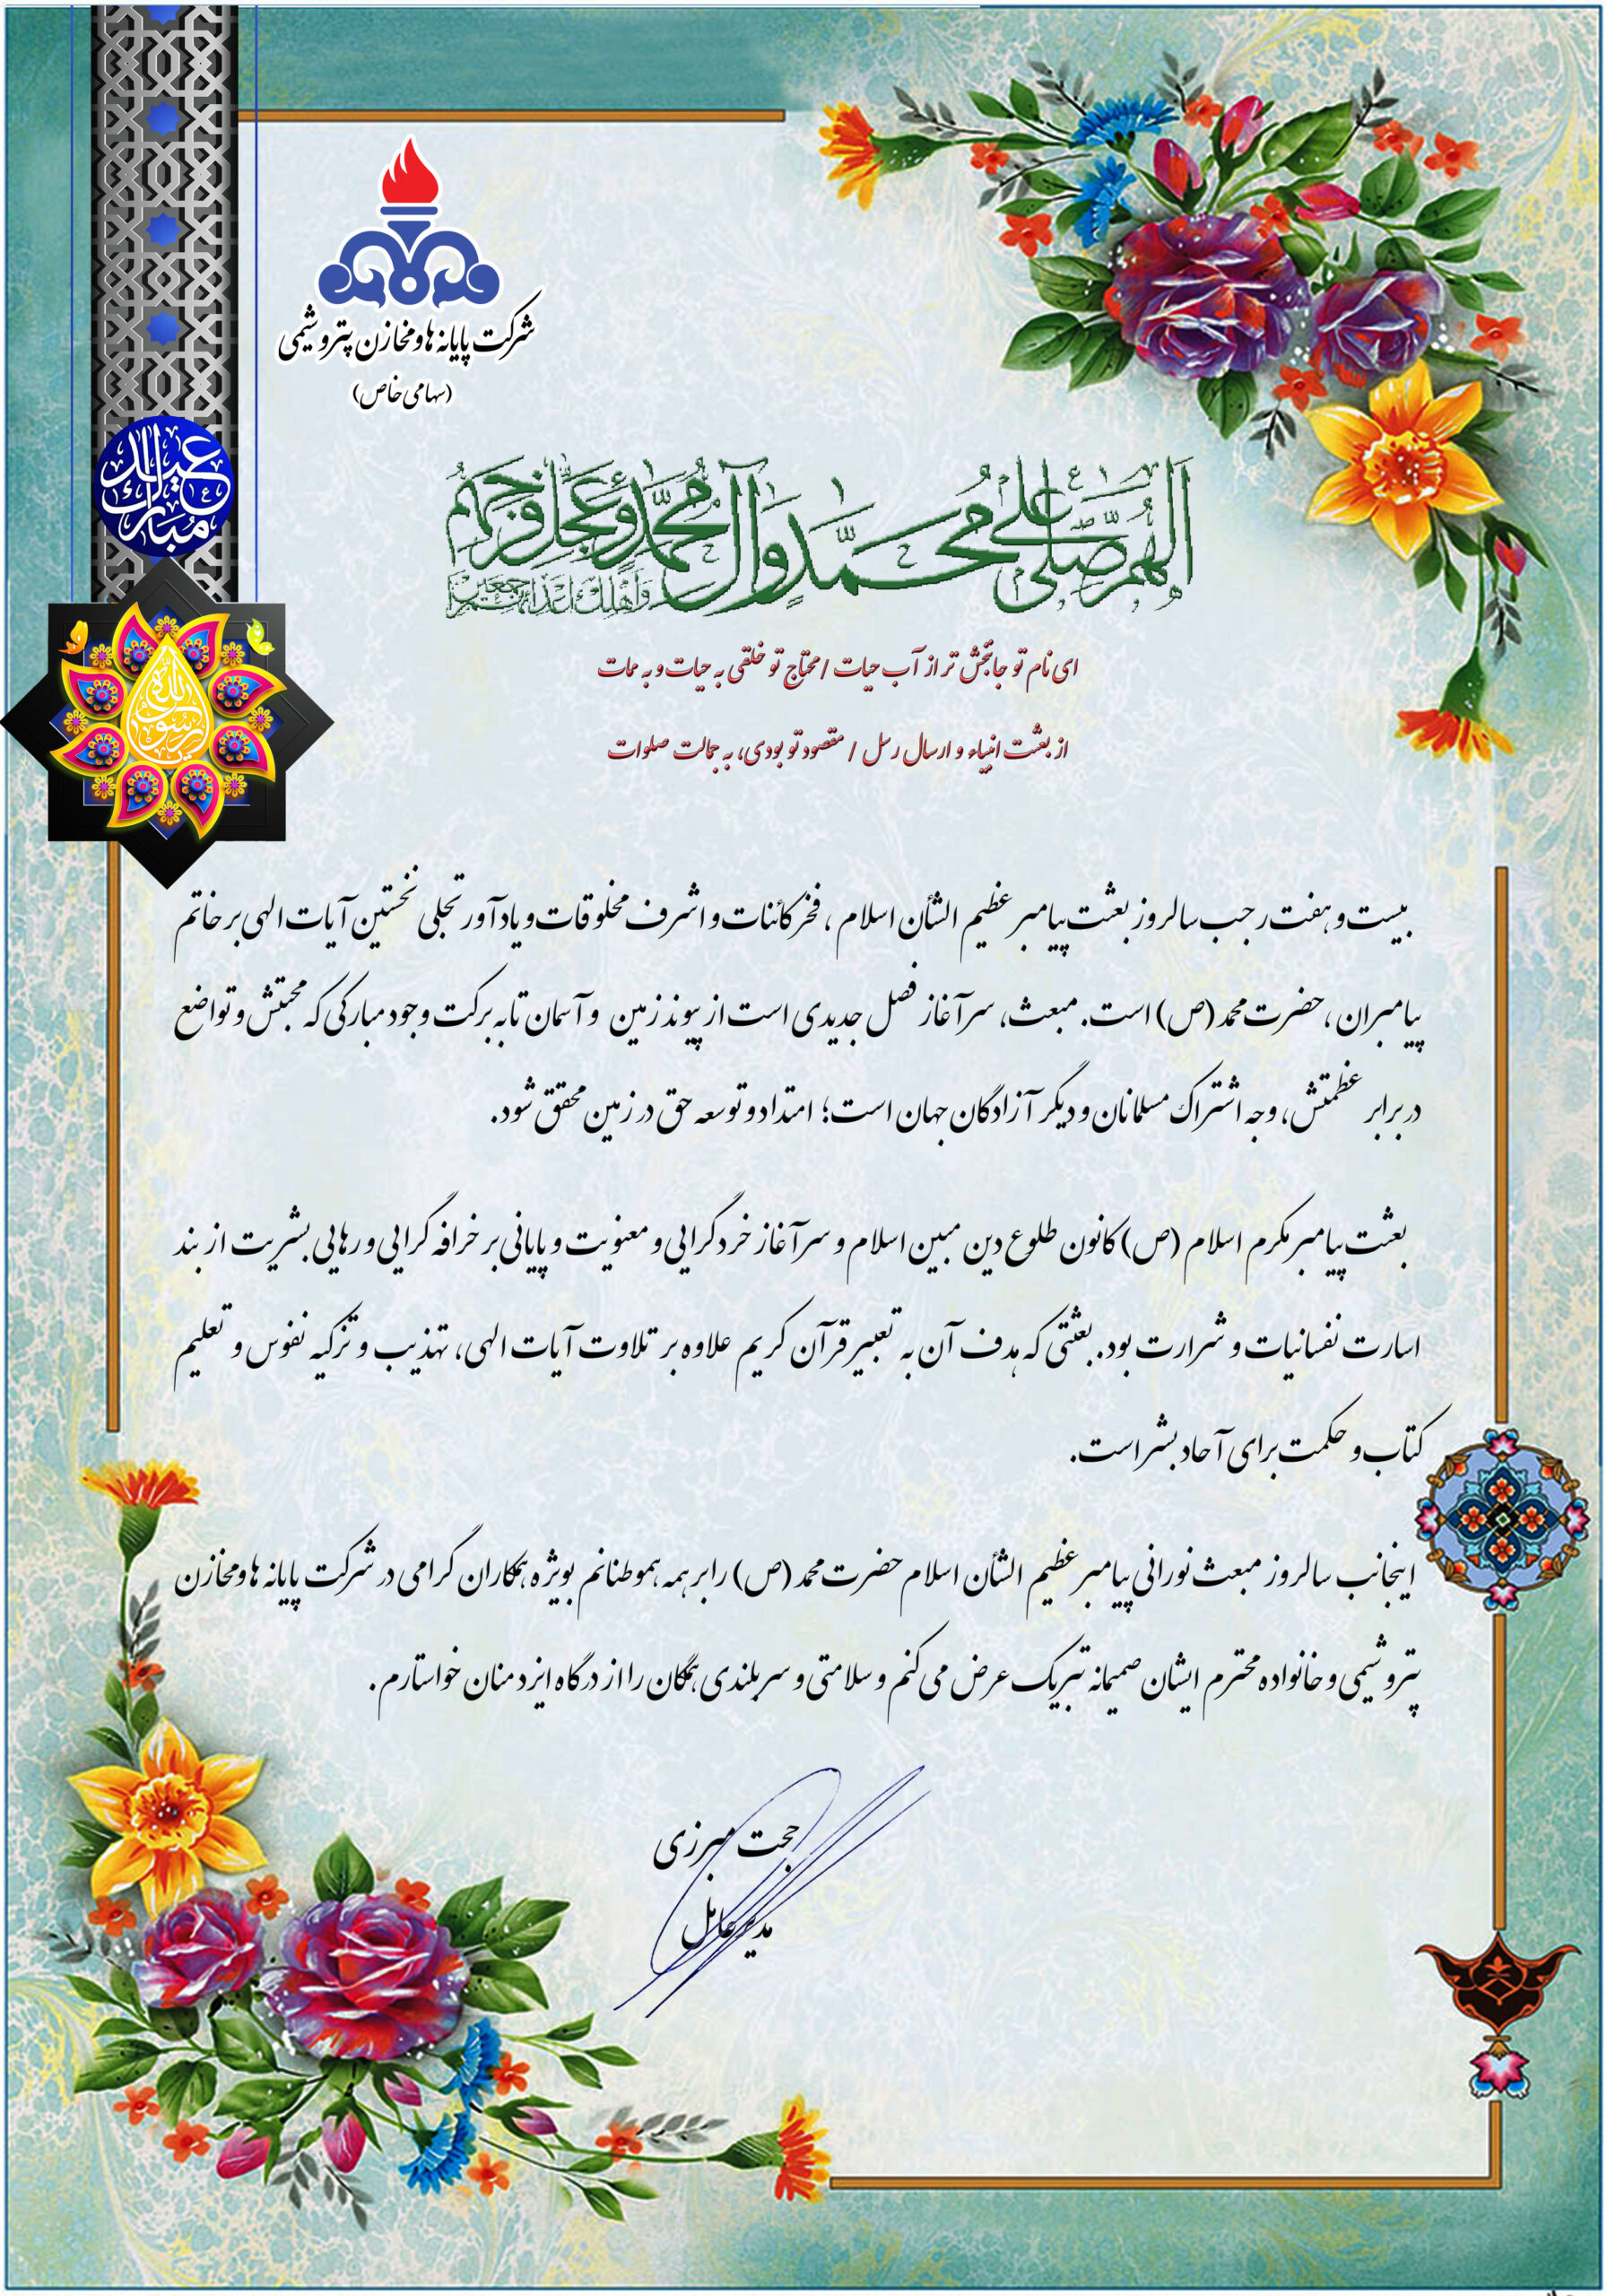 شرکت پایانه ها و مخازن پتروشیمی
(سهامی خاص)
عید مبارک
یا رسول الله
اللهم صل علی محمد وآل محمد وعجل فرجهم
وأهلك أعداءهم أجمعین
ای نام تو جانبخش تر از آب حیات / محتاج تو خلقی به حیات و به ممات
از بعثت انبیاء و ارسال رسل / مقصود تو بودی، به جمالت صلوات
بیست و هفت رجب سالروز بعثت پیامبر عظیم الشأن اسلام ، فخر کائنات و اشرف مخلوقات و یادآور تجلی نخستین آیات الهی بر خاتم
پیامبران ، حضرت محمد (ص) است. مبعث، سرآغاز فصل جدیدی است از پیوند زمین و آسمان تا به برکت وجود مبارکی که محبتش و تواضع
در برابر عظمتش، وجه اشتراک مسلمانان و دیگر آزادگان جهان است؛ امتداد و توسعه حق در زمین محقق شود.
بعثت پیامبر مکرم اسلام (ص) کانون طلوع دین مبین اسلام و سرآغاز خردگرایی و معنویت و پایانی بر خرافه گرایی و رهایی بشریت از بند
اسارت نفسانیات و شرارت بود. بعثتی که هدف آن به تعبیر قرآن کریم علاوه بر تلاوت آیات الهی، تهذیب و تزکیه نفوس و تعلیم
کتاب و حکمت برای آحاد بشر است.
اینجانب سالروز مبعث نورانی پیامبر عظیم الشأن اسلام حضرت محمد (ص) را بر همه هموطنانم بویژه همکاران گرامی در شرکت پایانه ها و مخازن
پتروشیمی و خانواده محترم ایشان صمیمانه تبریک عرض می کنم و سلامتی و سربلندی همگان را از درگاه ایزد منان خواستارم.
حجت میرزی
مدیر عامل